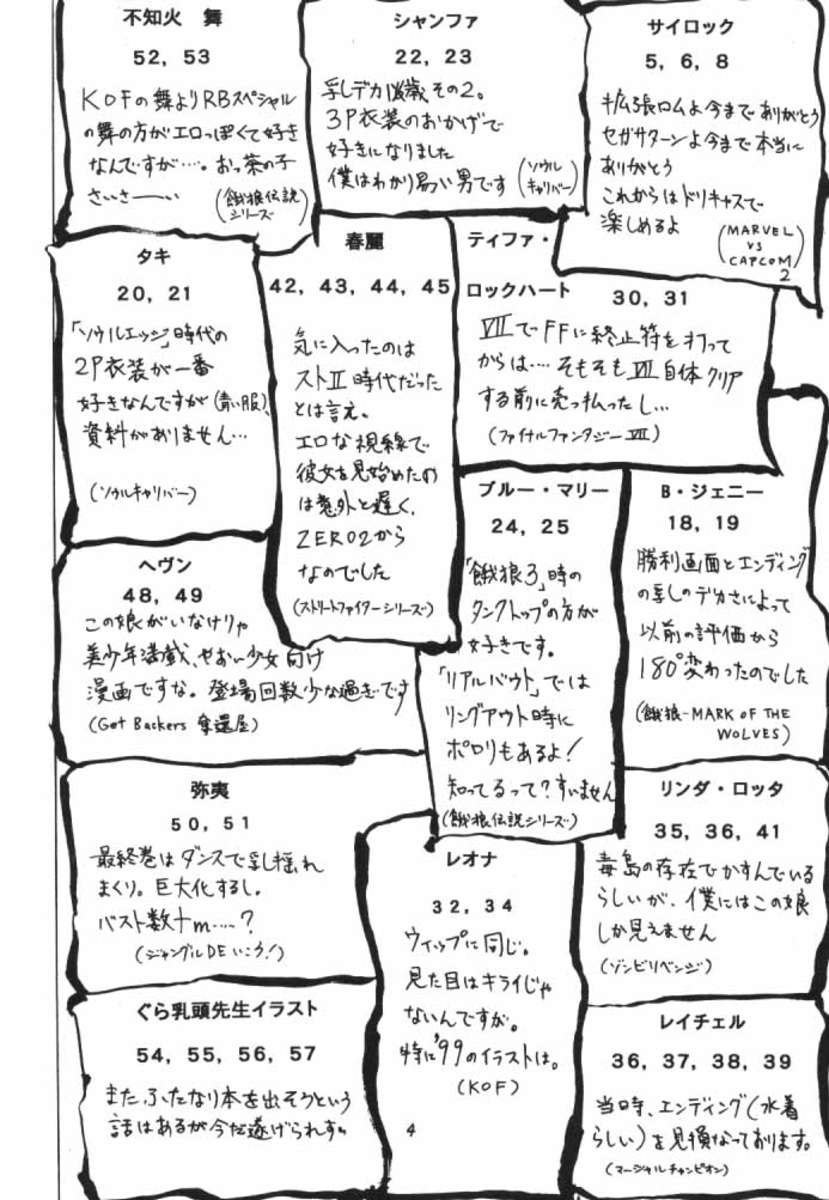 不知火 舞
52, 53
KOFの舞よりRBスペシャル
の舞の方がエロっぽくて好き
なんですが…。おっ茶の子
さいさーーい
(餓狼伝説
シリーズ)
シャンファ
22, 23
乳デカ その2。
3P衣装のおかげで
好きになりました
僕はわかり易い男です
(ソウル
キャリバー)
サイロック
5, 6, 8
拡張ロムよ今までありがとう
セガサターンよ今まで本当に
ありがとう
これからはドリキャスで
楽しめるよ
(MARVEL
VS
CAPCOM
2)
タキ
20, 21
「ソウルエッジ」時代の
2P衣装が一番
好きなんですが(青い服)、
資料がありません…
(ソウルキャリバー)
春麗
42, 43, 44, 45
気に入ったのは
ストⅡ時代だった
とは言え。
エロな視線で
彼女を見始めたの
は意外と遅く、
ZERO2から
なのでした
(ストリートファイターシリーズ)
ティファ・
ロックハート
30, 31
ⅦでFFに終止符を打って
からは…そもそもⅦ自体クリア
する前に売っ払ったし…
(ファイナルファンタジーⅦ)
ブルー・マリー
24, 25
「餓狼3」時の
タンクトップの方が
好きです。
「リアルバウト」では
リングアウト時に
ポロリもあるよ!
知ってるって?すいません
(餓狼伝説シリーズ)
B・ジェニー
18, 19
勝利画面とエンディング
の乳のデカさによって
以前の評価から
180°変わったのでした
(餓狼-MARK OF THE
WOLVES)
ヘヴン
48, 49
この娘がいなけりゃ
美少年満載、やおい少女向け
漫画ですな。登場回数少な過ぎです
(Get Backers 奪還屋)
弥夷
50, 51
最終巻はダンスで乳揺れ
まくり。巨大化するし。
バスト数十m……?
(ジャングルDEいこう!)
レオナ
32, 34
ウィップに同じ。
見た目はキライじゃ
ないんですが。
特に'99のイラストは。
(KOF)
リンダ・ロッタ
35, 36, 41
毒島の存在でかすんでいる
らしいが、僕にはこの娘
しか見えません
(ゾンビリベンジ)
ぐら乳頭先生イラスト
54, 55, 56, 57
また、ふたなり本を出そうという
話はあるが今だ遂げられず。
レイチェル
36, 37, 38, 39
当時、エンディング(水着
らしい)を見損なっております。
(マーシャルチャンピオン)
4